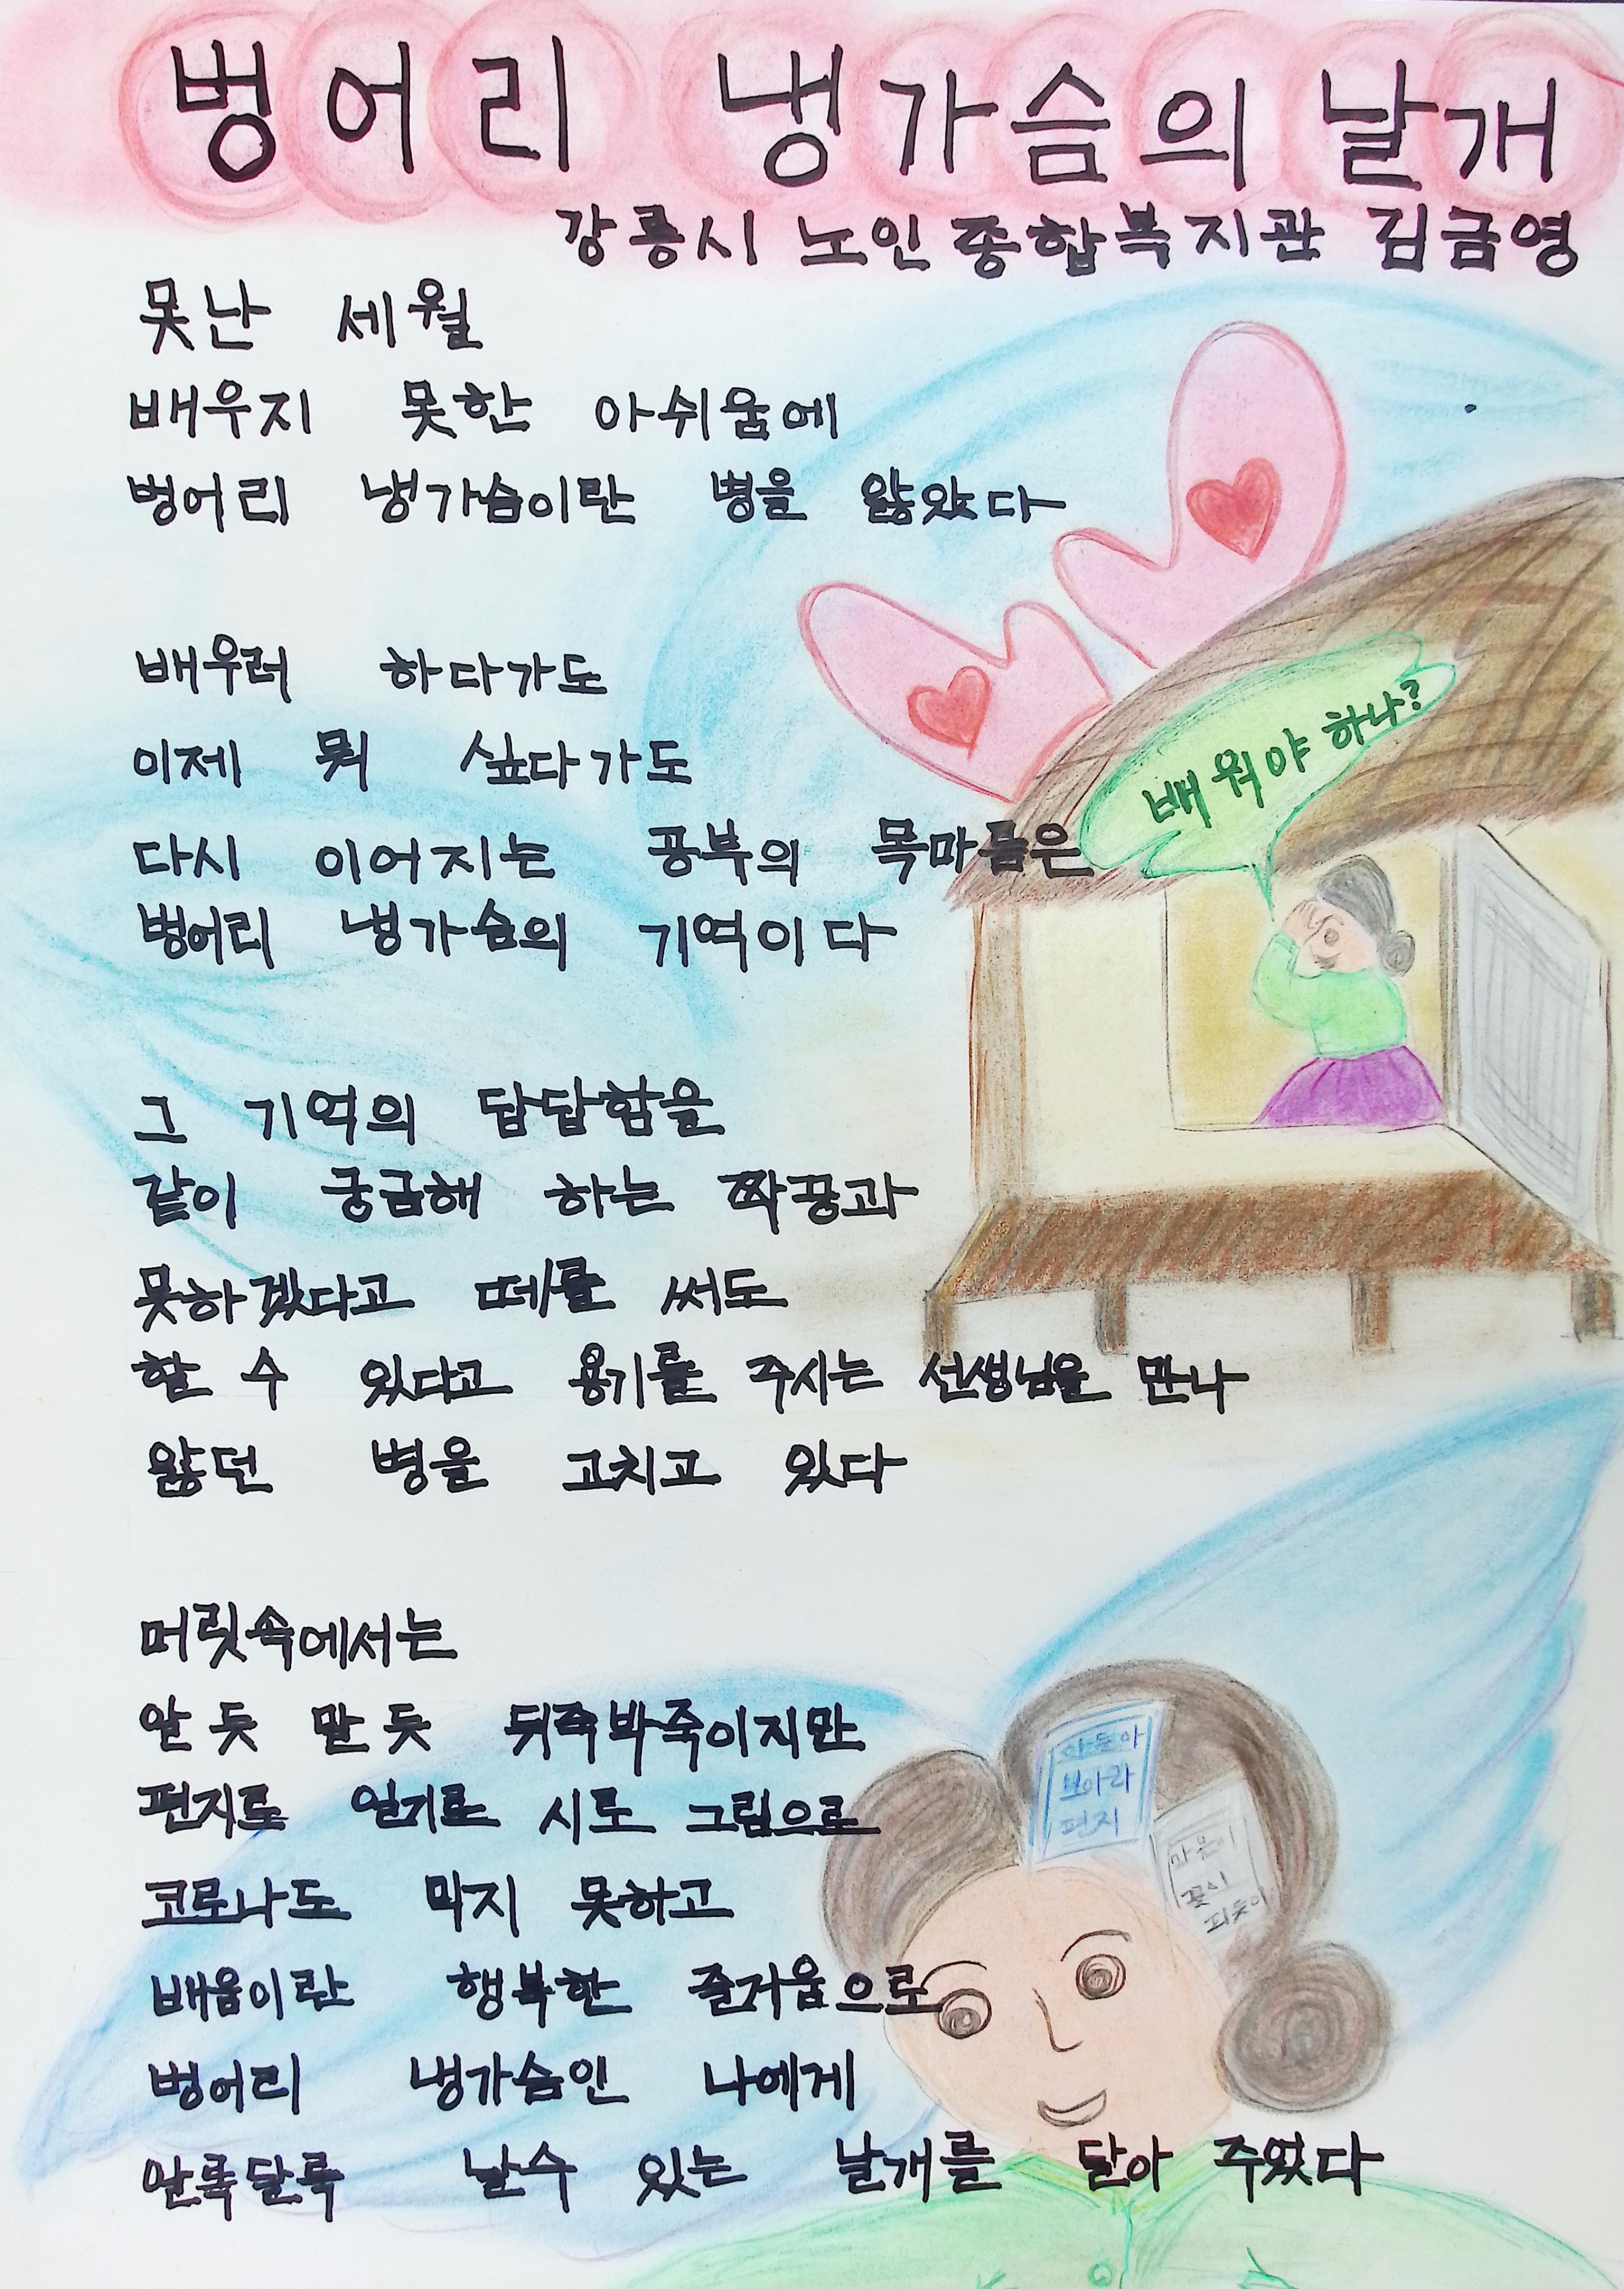 벙어리 냉가슴의 날개
강릉시 노인종합복지관 김금영
못난 세월
배우지 못한 아쉬움에
벙어리 냉가슴이란 병을 앓았다
배우려 하다가도
이제 뭐 싶다가도
다시 이어지는 공부의 목마름은
벙어리 냉가슴의 기억이다
배워야 하나?
그 기억의 답답함을
같이 궁금해 하는 짝꿍과
못하겠다고 떼를 써도
할 수 있다고 용기를 주시는 선생님을 만나
앓던 병을 고치고 있다
머릿속에서는
알 듯 말 듯 뒤죽박죽이지만
편지로 일기로 시로 그림으로
코로나도 막지 못하고
배움이란 행복한 즐거움으로
벙어리 냉가슴인 나에게
알록달록 날수 있는 날개를 달아 주었다
아들아
보아라
편지
마음에
꽃이
피듯이